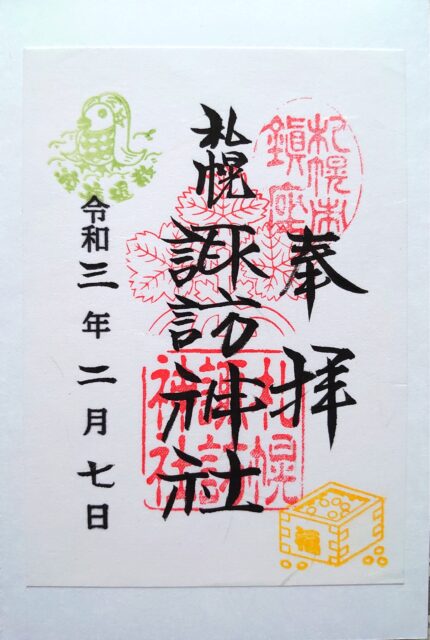 奉拝
札幌市
鎮座
札幌諏訪神社
札幌
諏訪
神社
令和三年二月七日
福